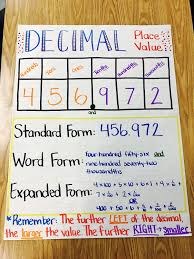 DECIMAL Place Value
Hundreds Tens Ones Tenths Hundredths Thousandths
4 5 6 . 9 7 2
and
Standard Form: 456.972
Word Form: four hundred fifty-six and
nine hundred seventy-two
thousandths
Expanded Form: 4×100 + 5×10 + 6×1 +
*Remember: The further LEFT of the decimal,
the larger the value. The further RIGHT→ smaller.